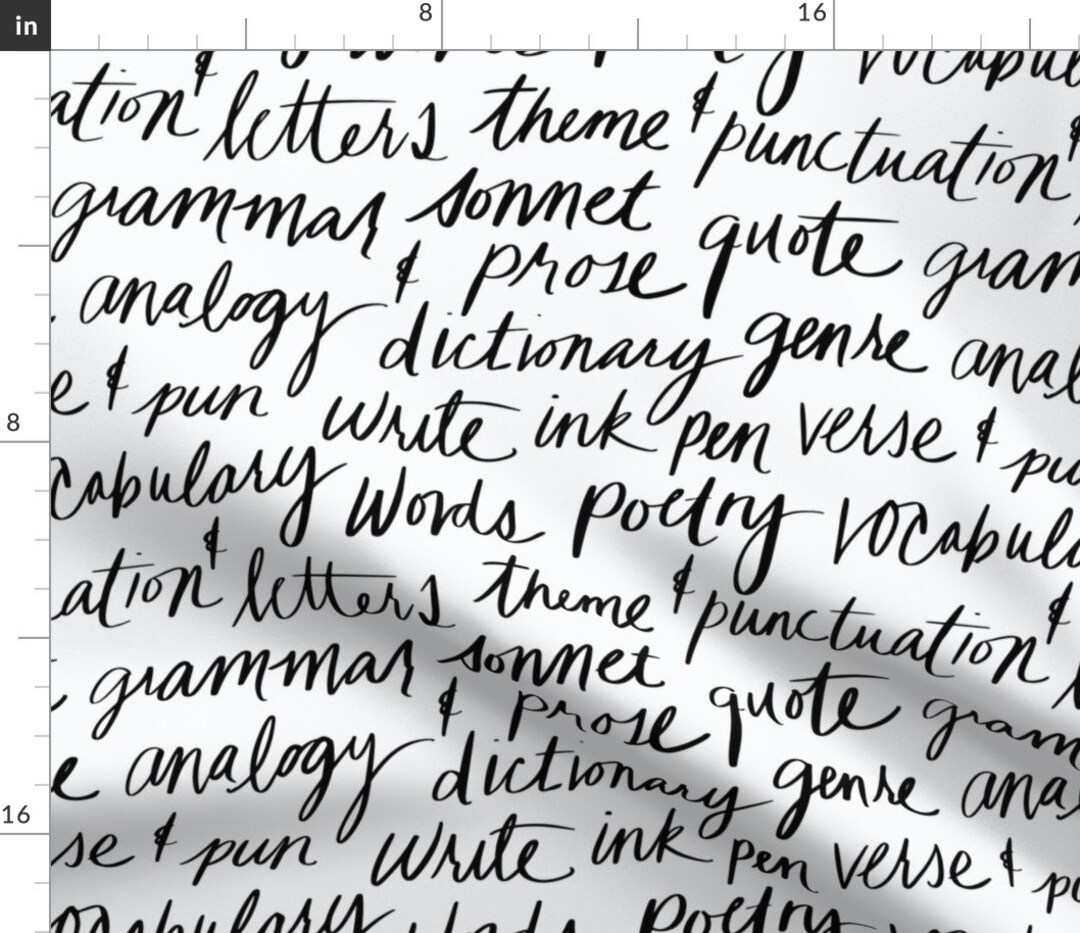 in 8 16
vocabul
ation & letters theme & punctuation &
grammar sonnet quote gram
analogy & prose
dictionary genre anal
e & pun write ink pen verse & pu
8
cabulary words poetry vocabul
ation & letters theme & punctuation &
grammar sonnet quote gram
& prose
e analogy dictionary genre ana
16
se & pun write ink pen verse & pu
poetry